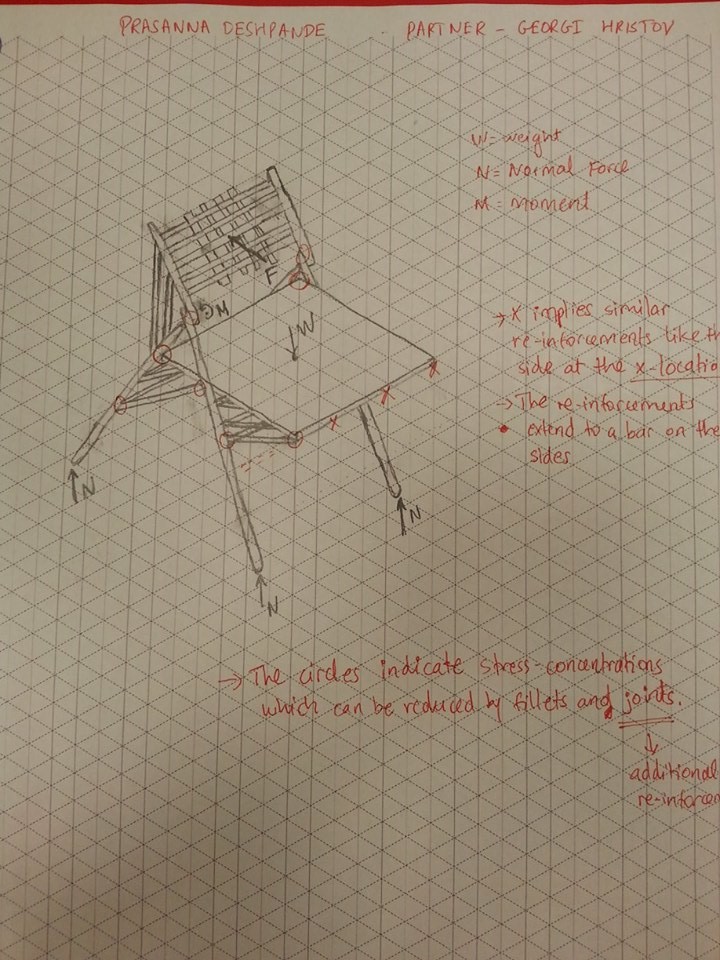 PRASANNA DESHPANDE
PARTNER - GEORGI HRISTOV
W= weight
N= Normal Force
M= moment
F
M
W
→ X implies similar
re-inforcements like th
side at the x-locatio
→ The re-inforcements
extend to a bar on the
sides
X
X
X
N
N
N
→ The circles indicate stress-concentrations
which can be reduced by fillets and joints.
↓
additional
re-inforcem